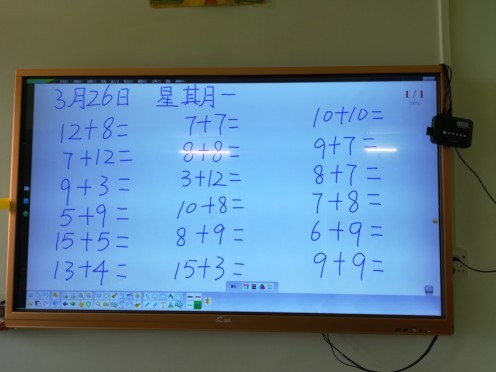 3月26日 星其月一
1/1
12+8= 7+7= 10+10=
7+12= 8+8= 9+7=
9+3= 3+12= 8+7=
5+9= 10+8= 7+8=
15+5= 8+9= 6+9=
13+4= 15+3= 9+9=